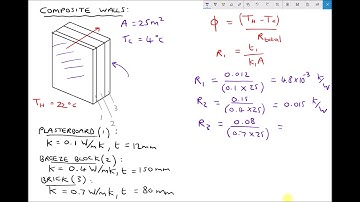 COMPOSITE WALLS:
A = 25m²
T_C = 4°C
T_H = 22°C
1
2
3
PLASTERBOARD (1):
K = 0.1 W/mK, t = 12mm
BREEZE BLOCK (2):
K = 0.4 W/mK, t = 150mm
BRICK (3):
K = 0.7 W/mK, t = 80mm
ϕ = (T_H - T_C) / R_total
R_1 = t_1 / k_1 A
R_1 = 0.012 / (0.1 × 25) = 4.8×10⁻³ K/W
R_2 = 0.15 / (0.4 × 25) = 0.015 K/W
R_3 = 0.08 / (0.7 × 25) =